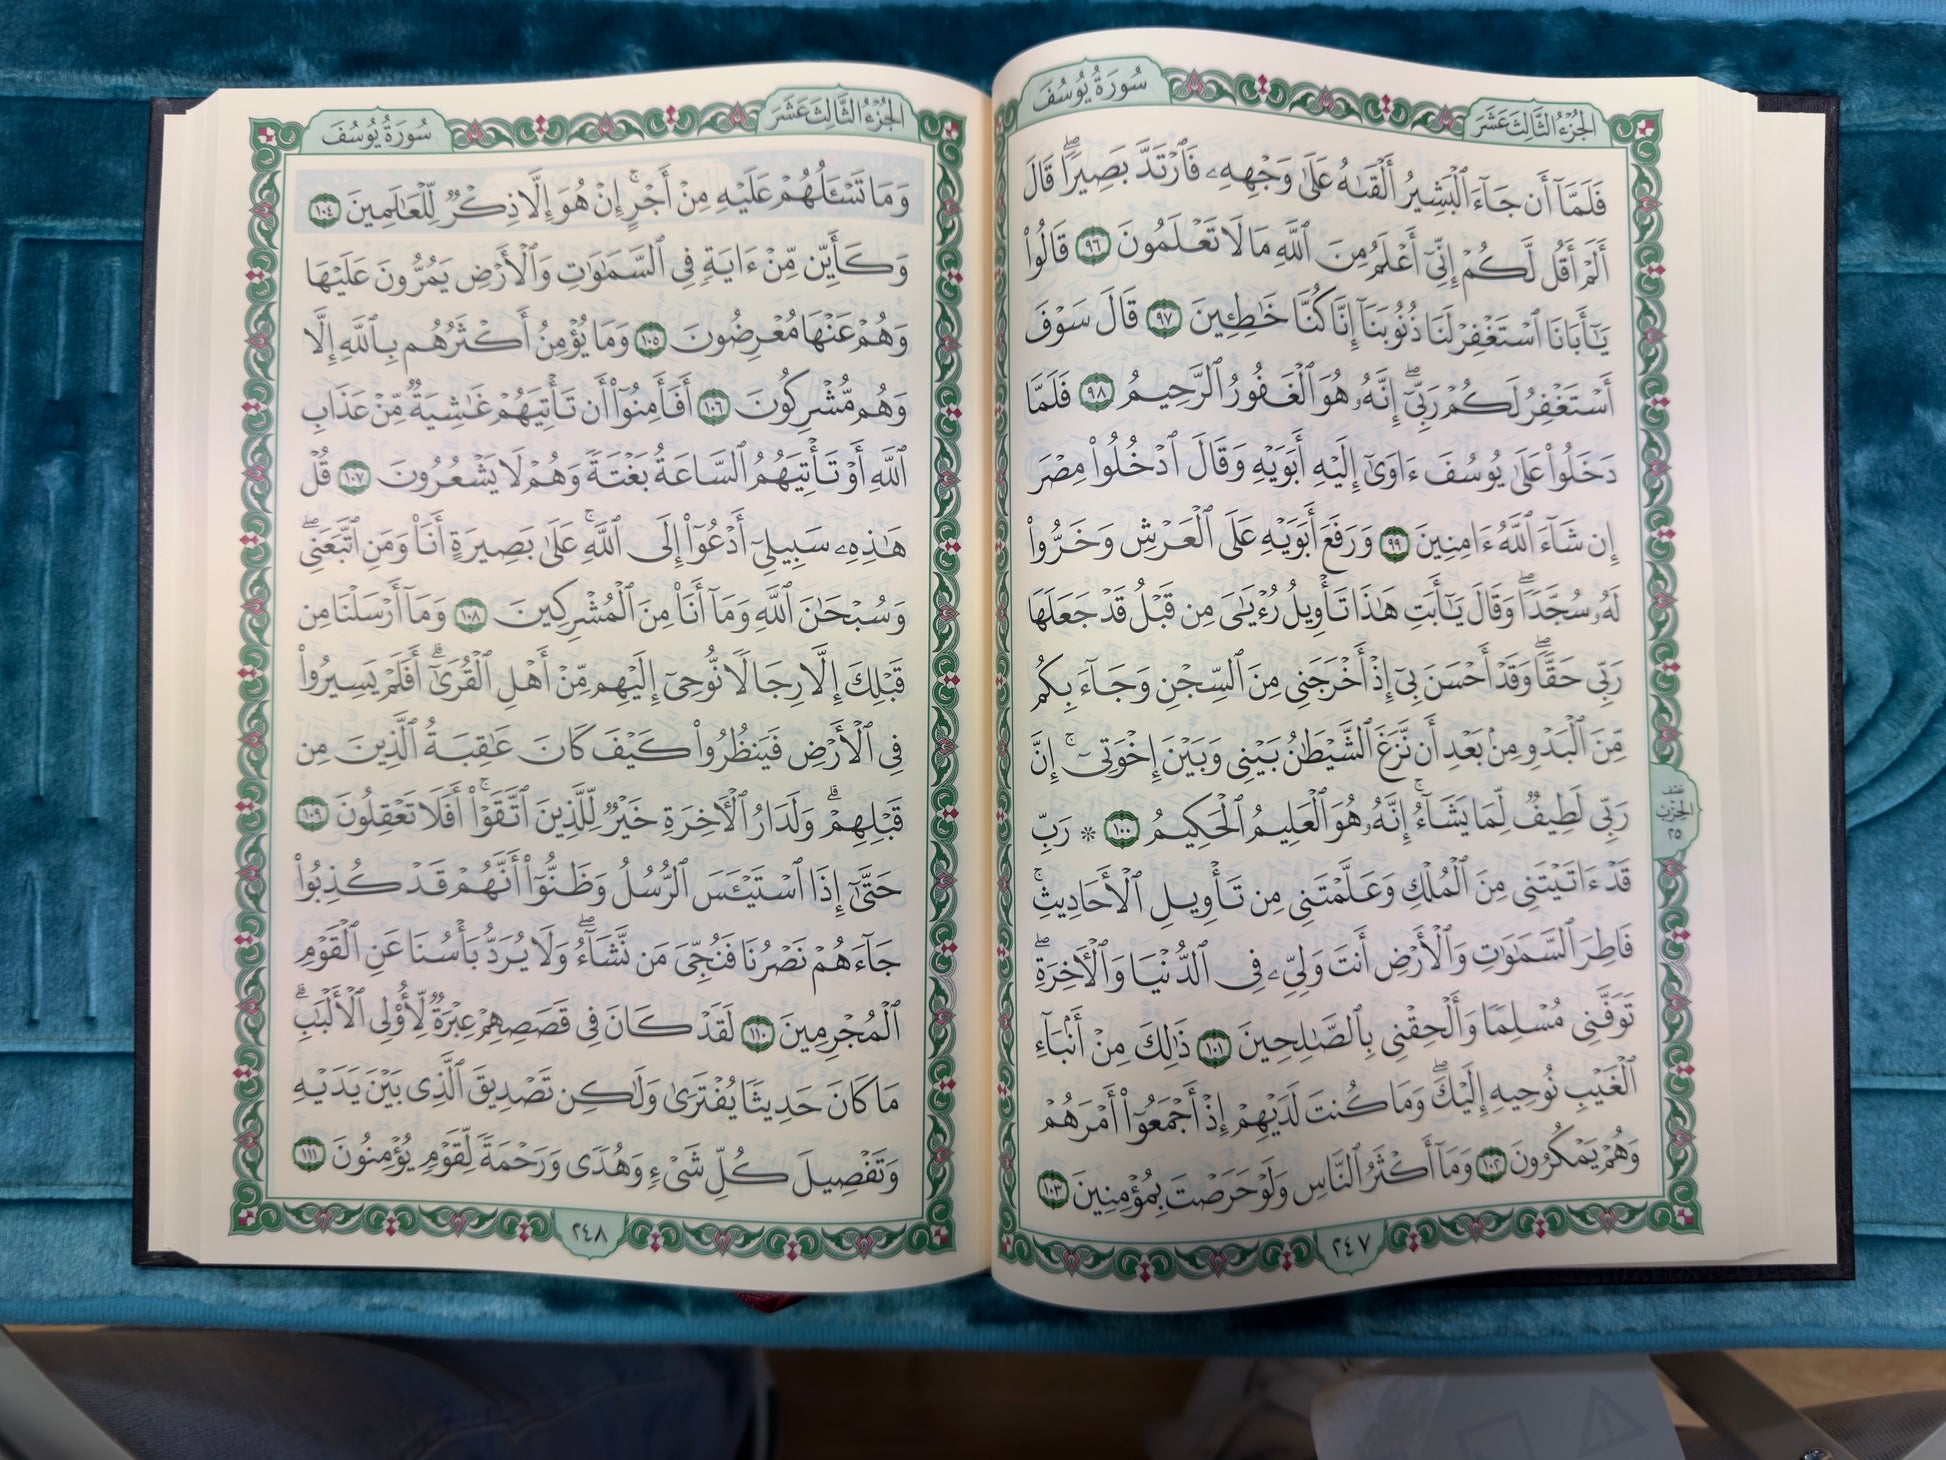 سُورَةُ يُوسُفَ
الجُزْءُ الثَّالِثَ عَشَرَ
فَلَمَّآ أَن جَآءَ ٱلْبَشِيرُ أَلْقَىٰهُ عَلَىٰ وَجْهِهِۦ فَٱرْتَدَّ بَصِيرًاۖ قَالَ
أَلَمْ أَقُل لَّكُمْ إِنِّىٓ أَعْلَمُ مِنَ ٱللَّهِ مَا لَا تَعْلَمُونَ ٩٦ قَالُوا۟
يَـٰٓأَبَانَا ٱسْتَغْفِرْ لَنَا ذُنُوبَنَآ إِنَّا كُنَّا خَـٰطِـِٔينَ ٩٧ قَالَ سَوْفَ
أَسْتَغْفِرُ لَكُمْ رَبِّىٓۖ إِنَّهُۥ هُوَ ٱلْغَفُورُ ٱلرَّحِيمُ ٩٨ فَلَمَّا
دَخَلُوا۟ عَلَىٰ يُوسُفَ ءَاوَىٰٓ إِلَيْهِ أَبَوَيْهِ وَقَالَ ٱدْخُلُوا۟ مِصْرَ
إِن شَآءَ ٱللَّهُ ءَامِنِينَ ٩٩ وَرَفَعَ أَبَوَيْهِ عَلَى ٱلْعَرْشِ وَخَرُّوا۟
لَهُۥ سُجَّدًاۖ وَقَالَ يَـٰٓأَبَتِ هَـٰذَا تَأْوِيلُ رُءْيَـٰىَ مِن قَبْلُ قَدْ جَعَلَهَا
رَبِّى حَقًّاۖ وَقَدْ أَحْسَنَ بِىٓ إِذْ أَخْرَجَنِى مِنَ ٱلسِّجْنِ وَجَآءَ بِكُم
مِّنَ ٱلْبَدْوِ مِنۢ بَعْدِ أَن نَّزَغَ ٱلشَّيْطَـٰنُ بَيْنِى وَبَيْنَ إِخْوَتِىٓۚ إِنَّ
رَبِّى لَطِيفٌ لِّمَا يَشَآءُۚ إِنَّهُۥ هُوَ ٱلْعَلِيمُ ٱلْحَكِيمُ ١٠٠ * رَبِّ
قَدْ ءَاتَيْتَنِى مِنَ ٱلْمُلْكِ وَعَلَّمْتَنِى مِن تَأْوِيلِ ٱلْأَحَادِيثِۚ
فَاطِرَ ٱلسَّمَـٰوَٰتِ وَٱلْأَرْضِ أَنتَ وَلِىِّۦ فِى ٱلدُّنْيَا وَٱلْـَٔاخِرَةِۖ
تَوَفَّنِى مُسْلِمًا وَأَلْحِقْنِى بِٱلصَّـٰلِحِينَ ١٠١ ذَٰلِكَ مِنْ أَنۢبَآءِ
ٱلْغَيْبِ نُوحِيهِ إِلَيْكَۖ وَمَا كُنتَ لَدَيْهِمْ إِذْ أَجْمَعُوٓا۟ أَمْرَهُمْ
وَهُمْ يَمْكُرُونَ ١٠٢ وَمَآ أَكْثَرُ ٱلنَّاسِ وَلَوْ حَرَصْتَ بِمُؤْمِنِينَ ١٠٣
نصف
الحزب
٢٥
٢٤٧
الجُزْءُ الثَّالِثَ عَشَرَ
سُورَةُ يُوسُفَ
وَمَا تَسْـَٔلُهُمْ عَلَيْهِ مِنْ أَجْرٍۚ إِنْ هُوَ إِلَّا ذِكْرٌ لِّلْعَـٰلَمِينَ ١٠٤
وَكَأَيِّن مِّنْ ءَايَةٍ فِى ٱلسَّمَـٰوَٰتِ وَٱلْأَرْضِ يَمُرُّونَ عَلَيْهَا
وَهُمْ عَنْهَا مُعْرِضُونَ ١٠٥ وَمَا يُؤْمِنُ أَكْثَرُهُم بِٱللَّهِ إِلَّا
وَهُم مُّشْرِكُونَ ١٠٦ أَفَأَمِنُوٓا۟ أَن تَأْتِيَهُمْ غَـٰشِيَةٌ مِّنْ عَذَابِ
ٱللَّهِ أَوْ تَأْتِيَهُمُ ٱلسَّاعَةُ بَغْتَةً وَهُمْ لَا يَشْعُرُونَ ١٠٧ قُلْ
هَـٰذِهِۦ سَبِيلِىٓ أَدْعُوٓا۟ إِلَى ٱللَّهِۚ عَلَىٰ بَصِيرَةٍ أَنَا۠ وَمَنِ ٱتَّبَعَنِىۖ
وَسُبْحَـٰنَ ٱللَّهِ وَمَآ أَنَا۠ مِنَ ٱلْمُشْرِكِينَ ١٠٨ وَمَآ أَرْسَلْنَا مِن
قَبْلِكَ إِلَّا رِجَالًا نُّوحِىٓ إِلَيْهِم مِّنْ أَهْلِ ٱلْقُرَىٰٓۗ أَفَلَمْ يَسِيرُوا۟
فِى ٱلْأَرْضِ فَيَنظُرُوا۟ كَيْفَ كَانَ عَـٰقِبَةُ ٱلَّذِينَ مِن
قَبْلِهِمْۗ وَلَدَارُ ٱلْـَٔاخِرَةِ خَيْرٌ لِّلَّذِينَ ٱتَّقَوْا۟ۚ أَفَلَا تَعْقِلُونَ ١٠٩
حَتَّىٰٓ إِذَا ٱسْتَيْـَٔسَ ٱلرُّسُلُ وَظَنُّوٓا۟ أَنَّهُمْ قَدْ كُذِبُوا۟
جَآءَهُمْ نَصْرُنَا فَنُجِّىَ مَن نَّشَآءُۖ وَلَا يُرَدُّ بَأْسُنَا عَنِ ٱلْقَوْمِ
ٱلْمُجْرِمِينَ ١١٠ لَقَدْ كَانَ فِى قَصَصِهِمْ عِبْرَةٌ لِّأُو۟لِى ٱلْأَلْبَـٰبِۗ
مَا كَانَ حَدِيثًا يُفْتَرَىٰ وَلَـٰكِن تَصْدِيقَ ٱلَّذِى بَيْنَ يَدَيْهِ
وَتَفْصِيلَ كُلِّ شَىْءٍ وَهُدًى وَرَحْمَةً لِّقَوْمٍ يُؤْمِنُونَ ١١١
٢٤٨